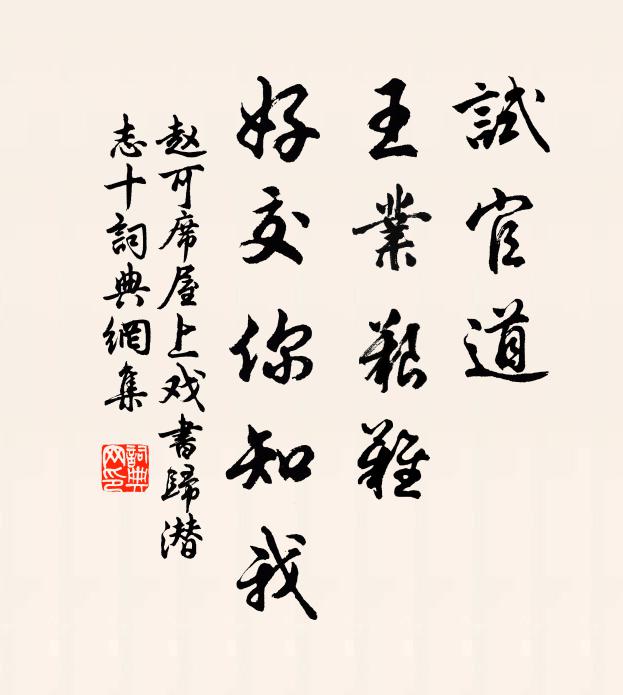 試官道
王業艱難
好交你知我
赵可席屋上戏書歸潜
志十詞典網集
詞典网印